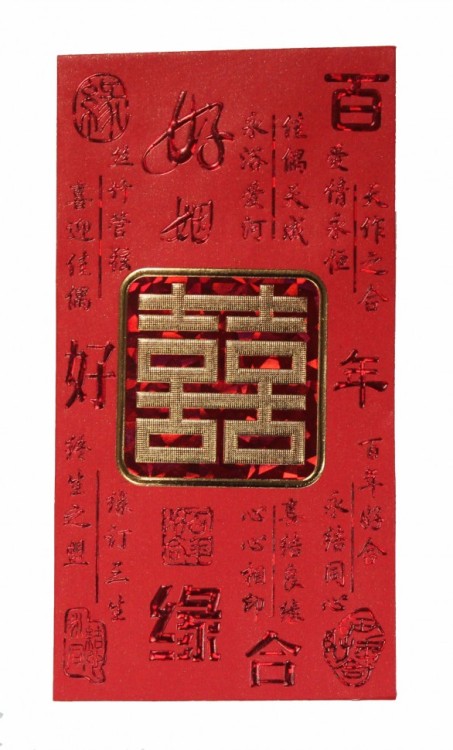 百
年
好
合
天作之合
爱情永恒
佳偶天成
永浴爱河
好
姻
缘
緣
丝竹
喜迎佳偶
囍
百年好合
永结同心
喜结良缘
心心相印
缘订三生
缘生之盟